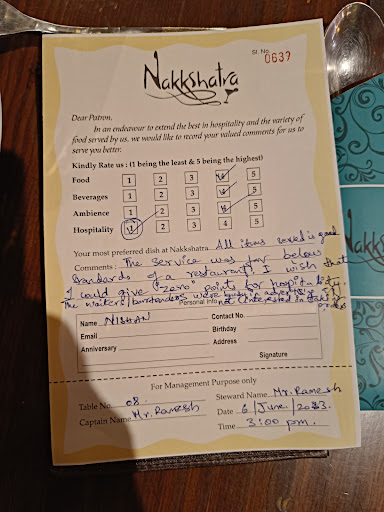 Sl. No.
0637
Nakkshatra
Dear Patron,
In an endeavour to extend the best in hospitality and the variety of
food served by us, we would like to record your valued comments for us to
serve you better.
Kindly Rate us : (1 being the least & 5 being the highest)
Food 1 2 3 4 5
Beverages 1 2 3 4 5
Ambience 1 2 3 4 5
Hospitality 1 2 3 4 5
Your most preferred dish at Nakkshatra All items served is good
Comments : The service was far below
standards of a restaurant. I wish that
I could give "zero" points for hospitality.
The waiters/bartenders were busy in advertising &
not interested in taking
orders
Personal Info
Name NISHAN Contact No.
Email Birthday
Anniversary Address
Signature
For Management Purpose only
Table No. 08. Steward Name Mr. Ramesh
Captain Name Mr. Ramesh Date 6/June/2023.
Time 3:00 pm.
Nakks